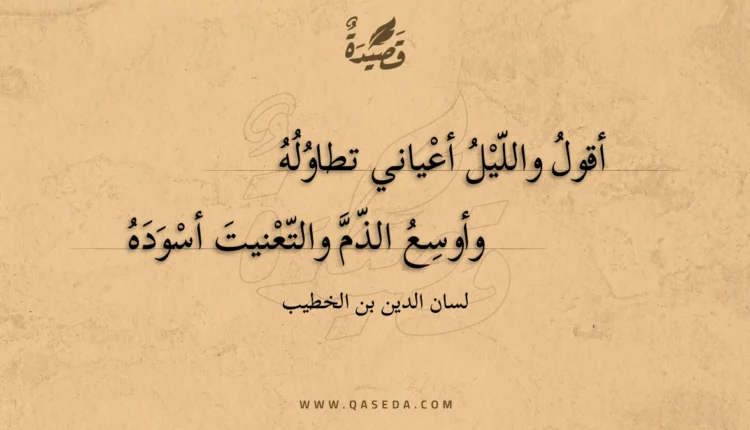 قَصِيْدَةٌ
أقولُ واللّيْلُ أعْياني تطاوُلُهُ
وأوسِعُ الذّمَّ والتّعْنيتَ أسْوَدَهُ
لسان الدين بن الخطيب
WWW.QASEDA.COM